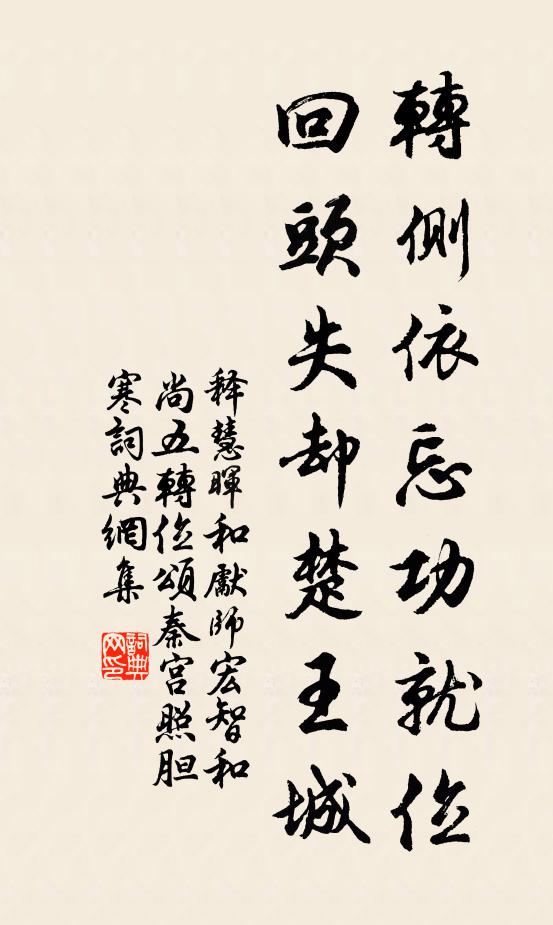 轉側依忘功就位
回頭失却楚王城
释慧暉和獻師宏智和
尚五轉位頌秦宫照胆
寒詞典網集
詞典
网印